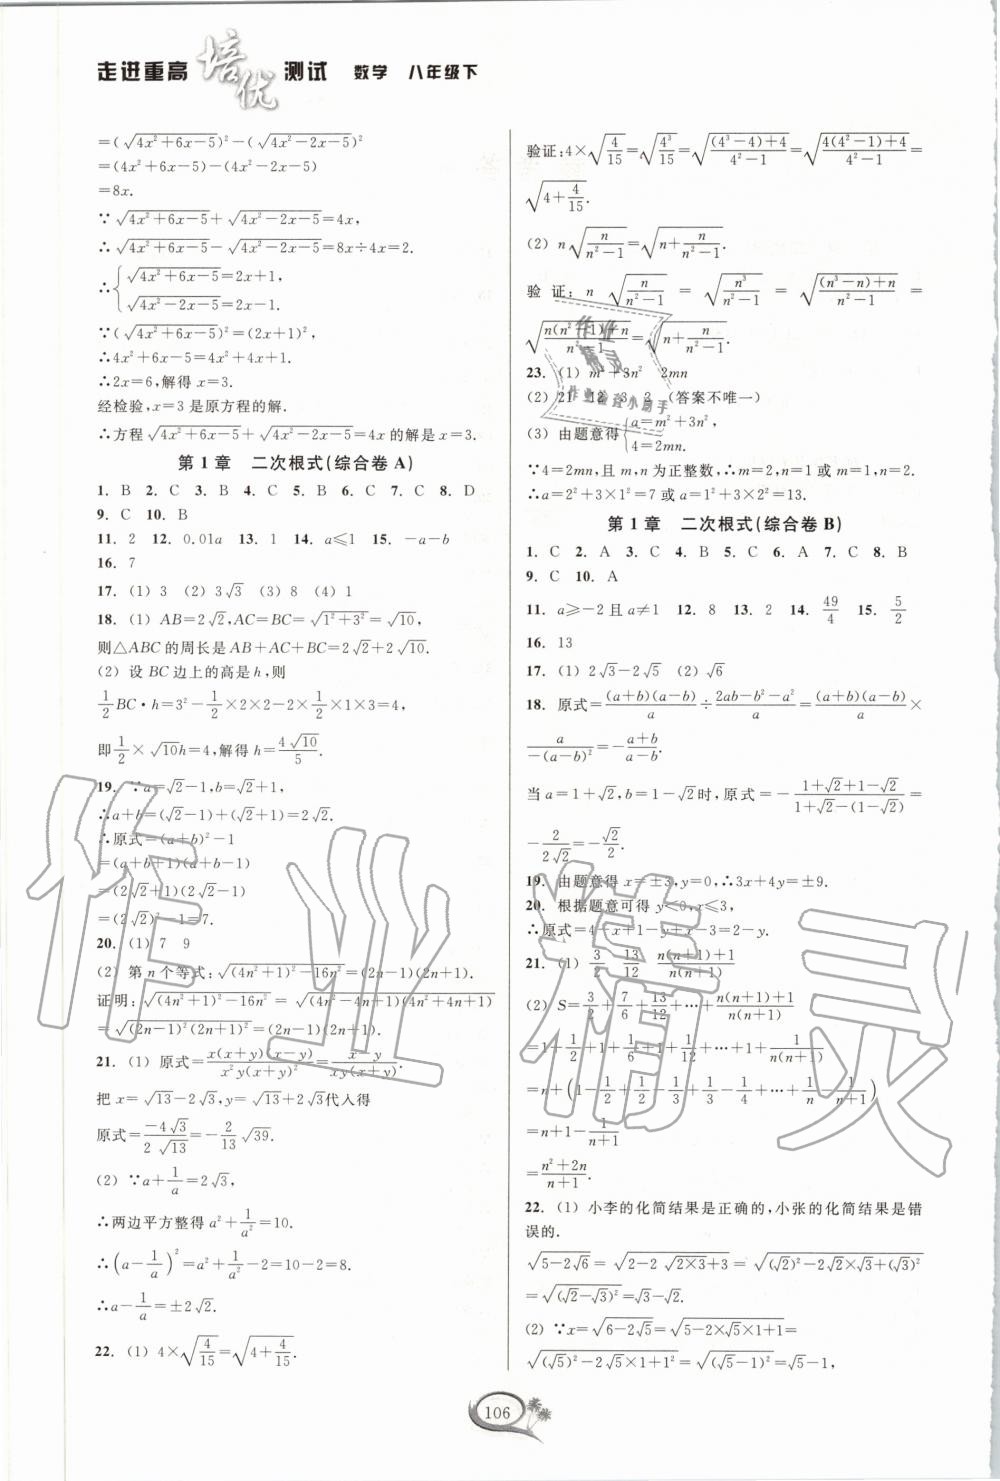 走进重高 培优 测试 数学 八年级下
=(√(4x²+6x-5))²-(√(4x²-2x-5))²
=(4x²+6x-5)-(4x²-2x-5)
=8x.
∵√(4x²+6x-5)+√(4x²-2x-5)=4x,
∴√(4x²+6x-5)-√(4x²-2x-5)=8x÷4x=2.
∴{√(4x²+6x-5)=2x+1,
√(4x²-2x-5)=2x-1.
∵(√(4x²+6x-5))²=(2x+1)²,
∴4x²+6x-5=4x²+4x+1.
∴2x=6,解得x=3.
经检验,x=3是原方程的解.
∴方程√(4x²+6x-5)+√(4x²-2x-5)=4x的解是x=3.
第1章 二次根式(综合卷A)
1. B 2. C 3. B 4. C 5. B 6. C 7. C 8. D
9. C 10. B
11. 2 12. 0.01a 13. 1 14. a≤1 15. -a-b
16. 7
17. (1) 3 (2) 3√3 (3) 8 (4) 1
18. (1) AB=2√2,AC=BC=√(1²+3²)=√10,
则△ABC的周长是AB+AC+BC=2√2+2√10.
(2) 设BC边上的高是h,则
1/2 BC·h=3²-1/2×2×2-2×1/2×1×3=4,
即1/2×√10h=4,解得h=4√10/5.
19. ∵a=√2-1,b=√2+1,
∴a+b=(√2-1)+(√2+1)=2√2.
∴原式=(a+b)²-1
=(a+b+1)(a+b-1)
=(2√2+1)(2√2-1)
=(2√2)²-1=7.
20. (1) 7 9
(2) 第n个等式:√((4n²+1)²-16n²)=(2n-1)(2n+1).
证明:√((4n²+1)²-16n²)=√((4n²-4n+1)(4n²+4n+1))
=√((2n-1)²(2n+1)²)=(2n-1)(2n+1).
21. (1) 原式=x(x+y)(x-y)/(x²y(x+y)²)=(x-y)/(xy(x+y)).
把x=√13-2√3,y=√13+2√3代入得
原式=-4√3/(2√13)=-2/13 √39.
(2) ∵a+1/a=2√3,
∴两边平方整得a²+1/a²=10.
∴(a-1/a)²=a²+1/a²-2=10-2=8.
∴a-1/a=±2√2.
22. (1) 4×√(4/15)=√(4+4/15).
验证:4×√(4/15)=√(4³/15)=√(((4³-4)+4)/(4²-1))=√((4(4²-1)+4)/(4²-1))=
√(4+4/15).
(2) n√(n/(n²-1))=√(n+n/(n²-1)).
验证:n√(n/(n²-1))=√(n³/(n²-1))=√(((n³-n)+n)/(n²-1))=
√((n(n²-1)+n)/(n²-1))=√(n+n/(n²-1)).
23. (1) m²+3n² 2mn
(2) 21 12 3 2 (答案不唯一)
(3) 由题意得{a=m²+3n²,
4=2mn.
∵4=2mn,且m,n为正整数,∴m=2,n=1或m=1,n=2.
∴a=2²+3×1²=7或a=1²+3×2²=13.
第1章 二次根式(综合卷B)
1. C 2. A 3. C 4. B 5. C 6. A 7. C 8. B
9. C 10. A
11. a≥-2且a≠1 12. 8 13. 2 14. 49/4 15. 5/2
16. 13
17. (1) 2√3-2√5 (2) √6
18. 原式=(a+b)(a-b)/a÷(2ab-b²-a²)/a=(a+b)(a-b)/a×
a/(-(a-b)²)=-(a+b)/(a-b).
当a=1+√2,b=1-√2时,原式=-(1+√2+1-√2)/(1+√2-(1-√2))=
-2/(2√2)=-√2/2.
19. 由题意得x=±3,y=0,∴3x+4y=±9.
20. 根据题意可得y<0,x≤3,
∴原式=4-x+1-y+x-3=2-y.
21. (1) 3/2 13/12 (n(n+1)+1)/(n(n+1))
(2) S=3/2+7/6+13/12+…+(n(n+1)+1)/(n(n+1))
=1+1/2+1+1/6+1+1/12+…+1+1/(n(n+1))
=n+(1-1/2+1/2-1/3+1/3-1/4+…+1/n-1/(n+1))
=n+1-1/(n+1)
=(n²+2n)/(n+1).
22. (1) 小李的化简结果是正确的,小张的化简结果是错
误的.
√(5-2√6)=√(2-2√(2×3)+3)=√((√2)²-2√2×√3+(√3)²)
=√((√2-√3)²)=√3-√2.
(2) ∵x=√(6-2√5)=√(5-2×√5×1+1)=
√((√5)²-2√5×1+1²)=√((√5-1)²)=√5-1,
106
作业精灵
作业检查小助手